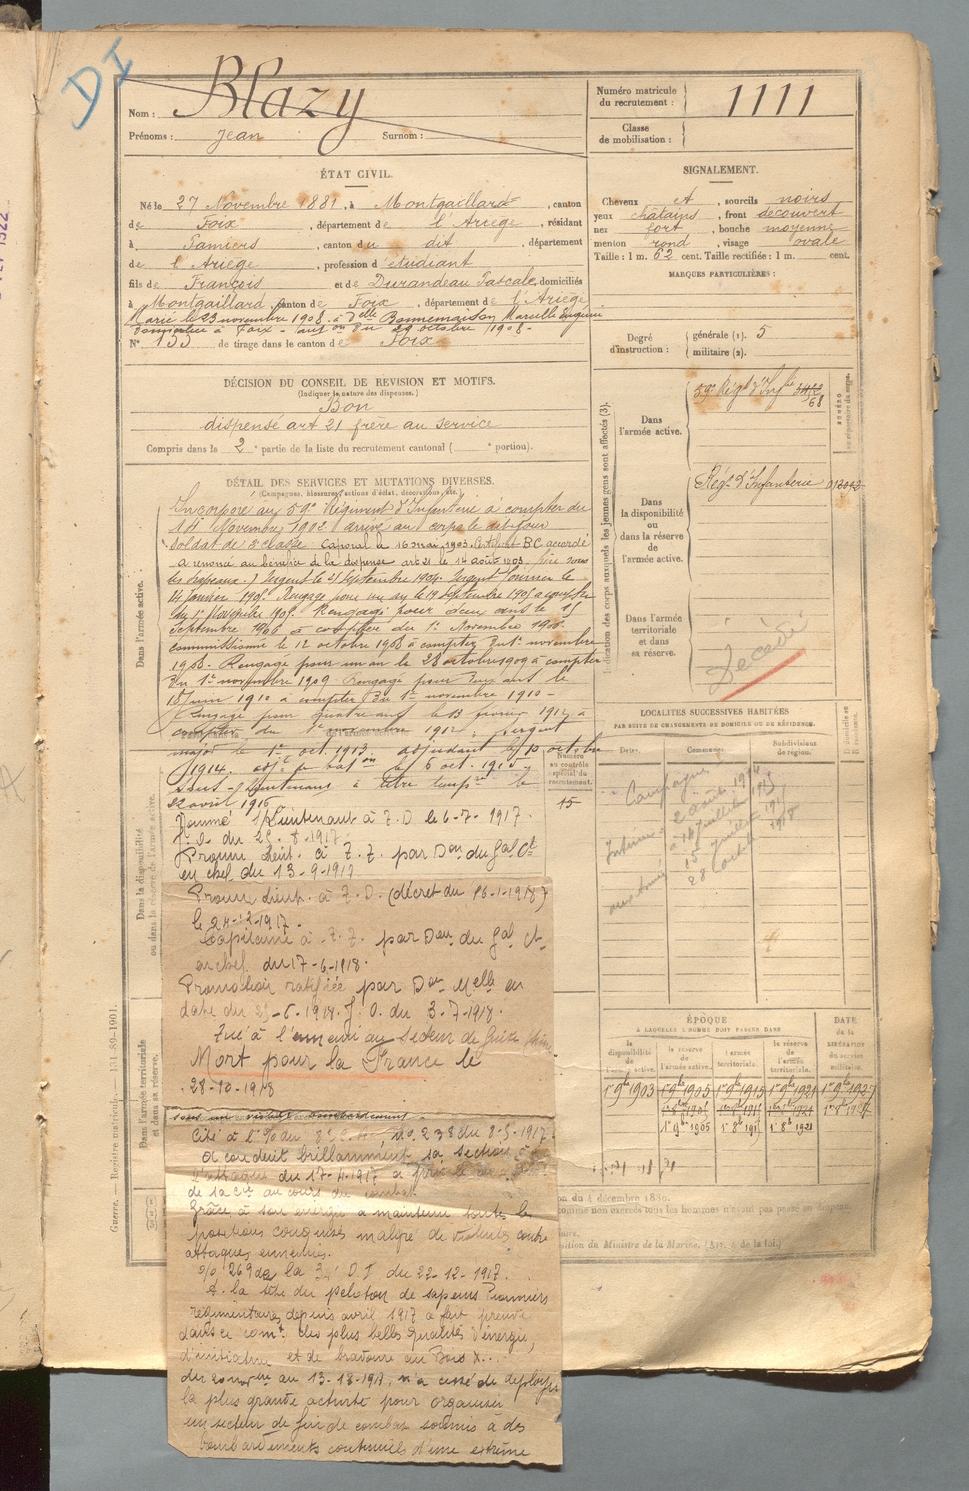 DI
Nom : Blazy
Prénoms : Jean Surnom :
Numéro matricule du recrutement : 1111
Classe de mobilisation :
ÉTAT CIVIL.
Né le 27 Novembre 1881, à Montgaillard, canton
de Foix, département de l'Ariège, résidant
à Pamiers, canton du dit, département
de l'Ariège, profession d'étudiant
fils de François et de Durandeau Pascale, domiciliés
à Montgaillard, canton de Foix, département de l'Ariège
Marié le 23 novembre 1908 à Delle Bonnemaison Marcelle Eugénie
domiciliée à Foix - Auton du 29 octobre 1908 -
N° 155 de tirage dans le canton de Foix
SIGNALEMENT.
Cheveux et, sourcils noirs
yeux châtains, front découvert
nez fort, bouche moyenne
menton rond, visage ovale
Taille : 1 m. 62 cent. Taille rectifiée : 1 m. cent.
MARQUES PARTICULIÈRES :
Degré d'instruction : générale (1). 5
militaire (2).
DÉCISION DU CONSEIL DE REVISION ET MOTIFS.
(Indiquer la nature des dispenses.)
Bon
dispensé art 21 frère au service
Compris dans la 2e partie de la liste du recrutement cantonal ( e portion).
DÉTAIL DES SERVICES ET MUTATIONS DIVERSES.
(Campagnes, blessures, actions d'éclat, décorations, etc.)
Dans l'armée active.
Incorporé au 59e Régiment d'Infanterie à compter du
14 Novembre 1902 arrivé au corps le dit jour
Soldat de 2e classe Caporal le 16 mai 1903. Certificat BC accordé
A renoncé au bénéfice de la dispense art 21 le 14 août 1903
les drapeaux.) Sergent le 21 Septembre 1904. Sergent fourrier le
14 Janvier 1905 Rengagé pour un an le 14 Septembre 1905 à compter
du 1er Novembre 1905. Rengagé pour deux ans le 15
Septembre 1906 à compter du 1er Novembre 1906.
Commissionné le 12 octobre 1908 à compter du 1er novembre
1908. Rengagé pour un an le 28 octobre 1909 à compter
du 1er novembre 1909 Rengagé pour deux ans le
15 juin 1910 à compter du 1er novembre 1910 -
Rengagé pour quatre ans le 13 février 1912 à
compter du 1er novembre 1912, sergent
major le 1er oct. 1913. adjudant le 10 octobre
1914. adjt de baton le 6 oct. 1915.
sous-lieutenant à titre tempre le
22 avril 1916
Nommé s/Lieutenant à T.D le 6-7-1917.
Promu Lieut. à T.T. par Don du Gal Ct
en chef du 13-9-1917
Promu Lieut. à T.D. (décret du 16-1-1918)
le 24-12-1917.
Capitaine à T.T. par Don du Gal Ct
en chef du 17-6-1918.
Promotion ratifiée par Don Melle en
date du 25-6-1918. J.O. du 3-7-1918.
Tué à l'ennemi au secteur de Guise
Mort pour la France le
28-10-1918
sous un violent bombardement
Cité à l'O/ du no 238 du 8-5-1917.
A conduit brillamment sa section
l'attaque du 17-4-1917
de sa Cie au cours du combat
Grâce à son énergie a maintenu toutes les
positions conquises malgré de violentes contre
attaques ennemies.
o/o 269 de la 34e D.I du 22-12-1917.
A la tête du peloton de sapeurs Pionniers
régimentaires depuis avril 1917 a fait preuve
dans ce comt des plus belles qualités d'énergie,
d'initiative et de bravoure au Bois X...
du au 13-12-1917, n'a cessé de déployer
la plus grande activité pour organiser
un secteur de fin de combat soumis à des
bombardements continuels d'une extrême
Numéro au contrôle spécial du recrutement.
15
Dans la disponibilité ou dans la réserve de l'armée active.
Dans l'armée territoriale et dans sa réserve.
Indication des corps auxquels les jeunes gens sont affectés (3).
Dans l'armée active.
59e Régt d'Infie
68
Dans la disponibilité ou dans la réserve de l'armée active.
Régt d'Infanterie
Dans l'armée territoriale et dans sa réserve.
Décédé
LOCALITÉS SUCCESSIVES HABITÉES
PAR SUITE DE CHANGEMENTS DE DOMICILE OU DE RÉSIDENCE.
Dates. Communes. Subdivisions de région.
Campagne
2 août 1914
Intérieur
14 juillet 1915
aux armées
15 juillet 1915
28 octobre 1918
ÉPOQUE
À LAQUELLE L'HOMME DOIT PASSER DANS
la disponibilité de l'armée active.
la réserve de l'armée active.
l'armée territoriale.
la réserve de l'armée territoriale.
DATE de la LIBÉRATION du service militaire.
1er 9bre 1903 1er 9bre 1905 1er 9bre 1915 1er 9bre 1921 1er 9bre 1927
1er 9bre 1905 1er 8bre 1915 1er 8bre 1921
Guerre. — Registre matricule. — 131-89-1901.
on du 4 décembre 1889.
comme non exercés tous les hommes n'ayant pas passé au drapeau.
sition du Ministre de la Marine. (Art. 4 de la loi.)